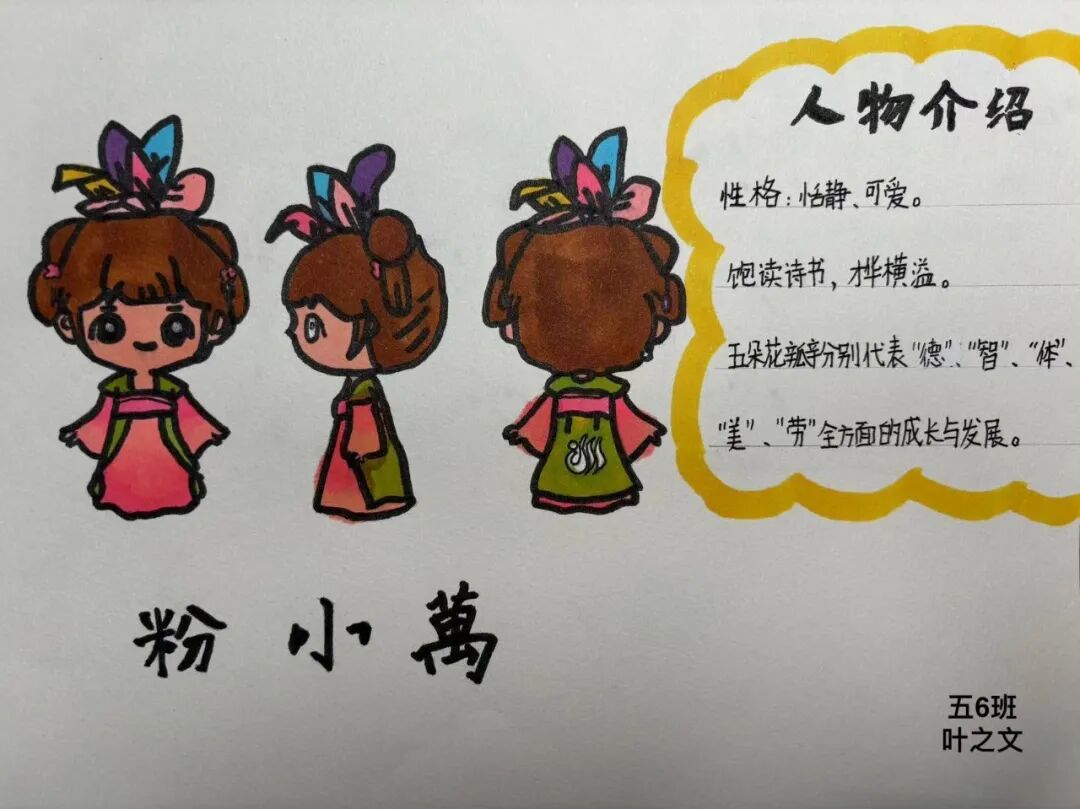 人物介绍
性格：恬静、可爱。
饱读诗书，才华横溢。
五朵花瓣分别代表“德”、“智”、“体”、
“美”、“劳”全方面的成长与发展。
粉小萬
五6班
叶之文